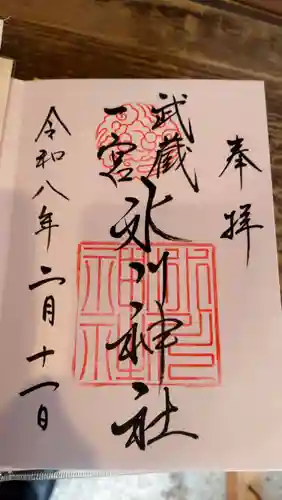 奉拝
武蔵
一宮
氷川神社
令和八年二月十一日
氷川神社